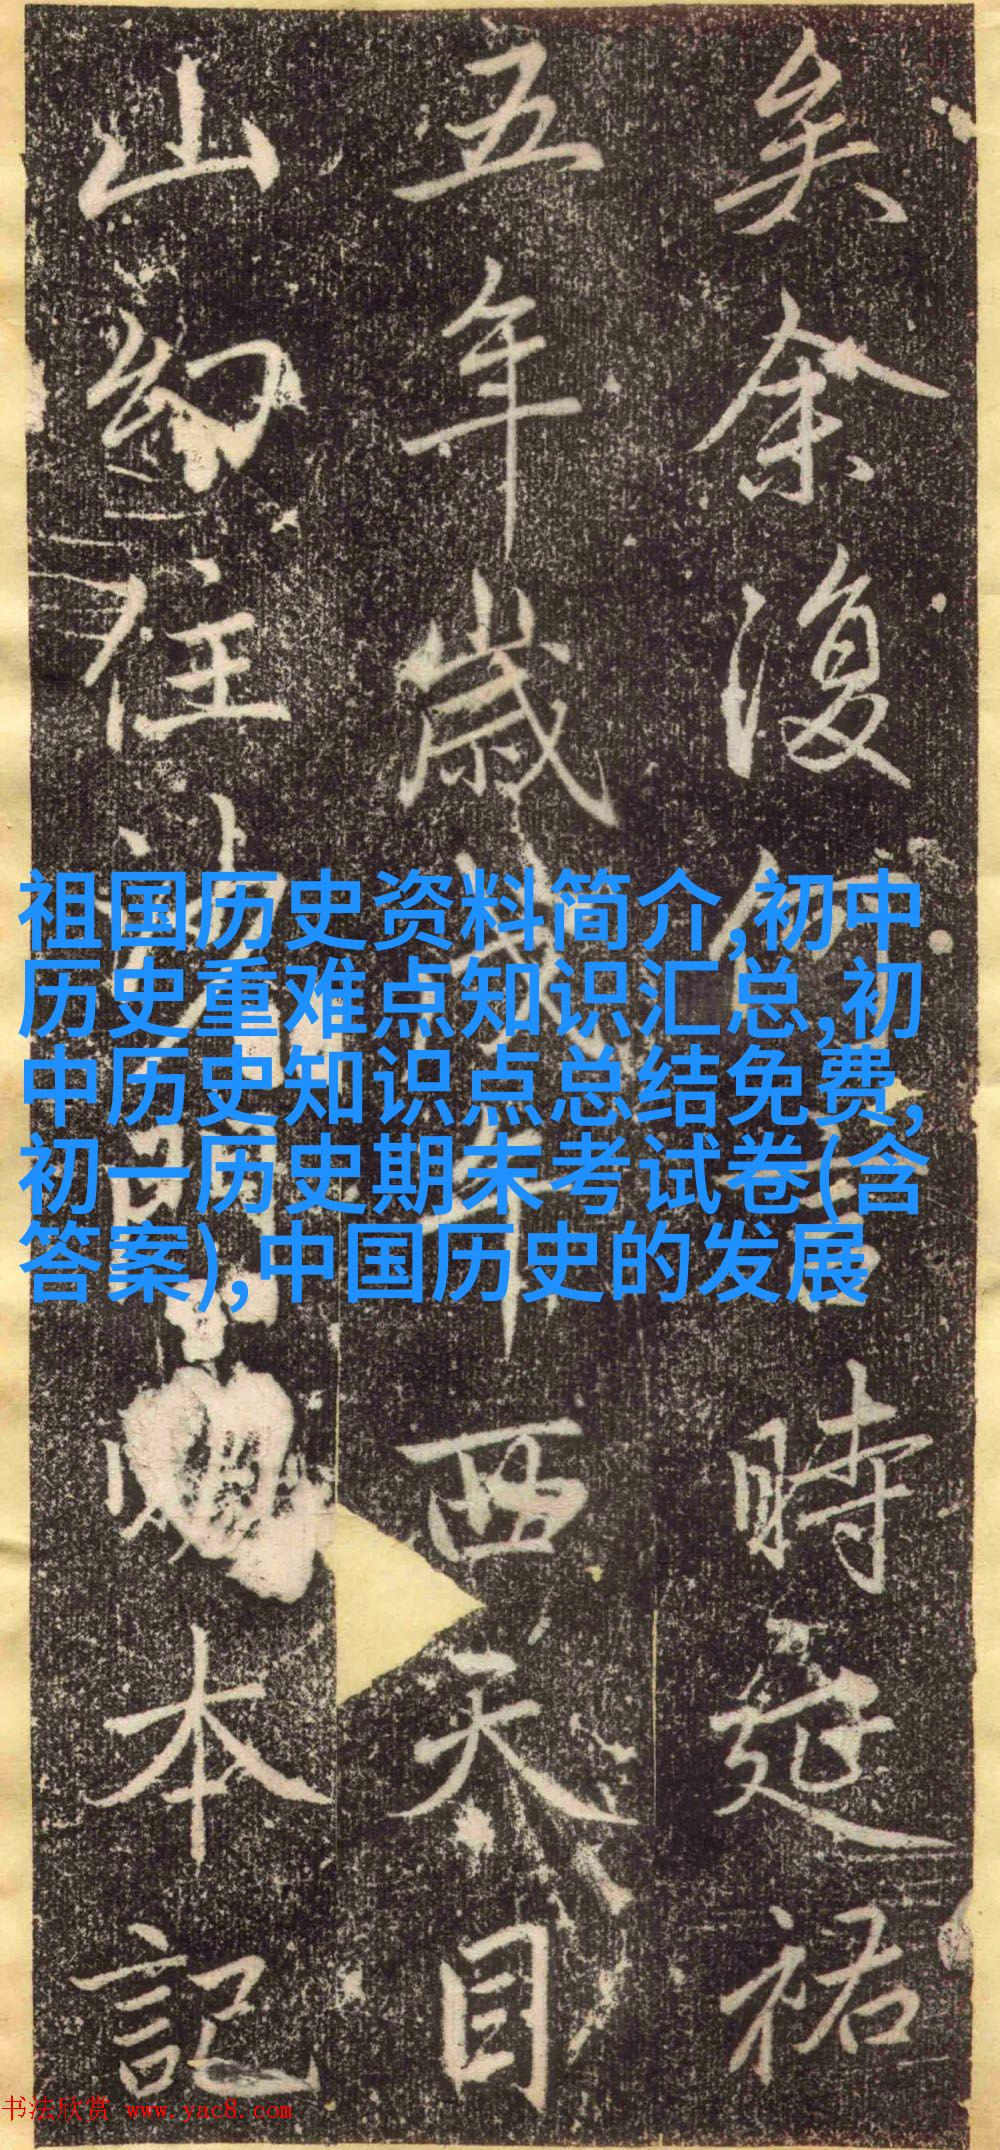 矣余復何時延祐
五年歲戊午西天目
山幻住沙門明本記
祖国历史资料简介,初中
历史重难点知识汇总,初
中历史知识点总结免费,
初一历史期末考试卷(含
答案),中国历史的发展
书法欣赏 www.yac8.com